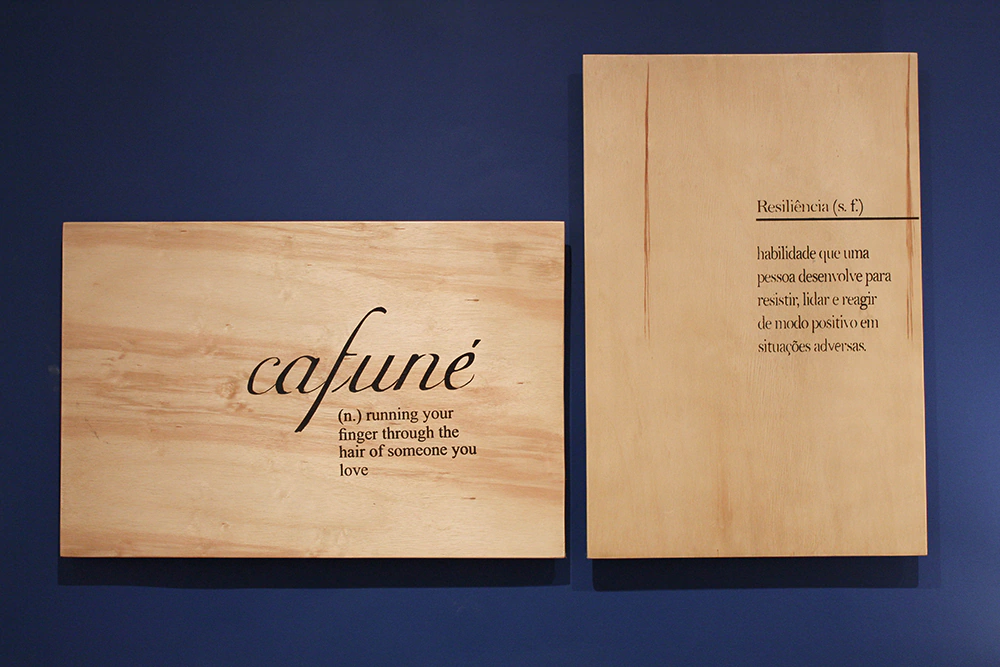 cafuné
(n.) running your
finger through the
hair of someone you
love
Resiliência (s. f.)
habilidade que uma
pessoa desenvolve para
resistir, lidar e reagir
de modo positivo em
situações adversas.